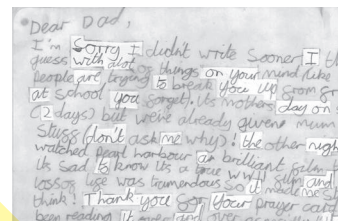 Dear Dad,
I'm Sorry I didn't write Sooner I
guess with alot of things on your mind like
People are trying to break you up from
at School you forget). Its mothers day on
(2 days) but we've already given mum
Stuff (don't ask me why)! the other night
watched pearl harbour a brilliant film
Its Sad to know its a true WWII film and
losses use was tremendous so it made me
think! Thank you for your prayer card
been reading it over and over